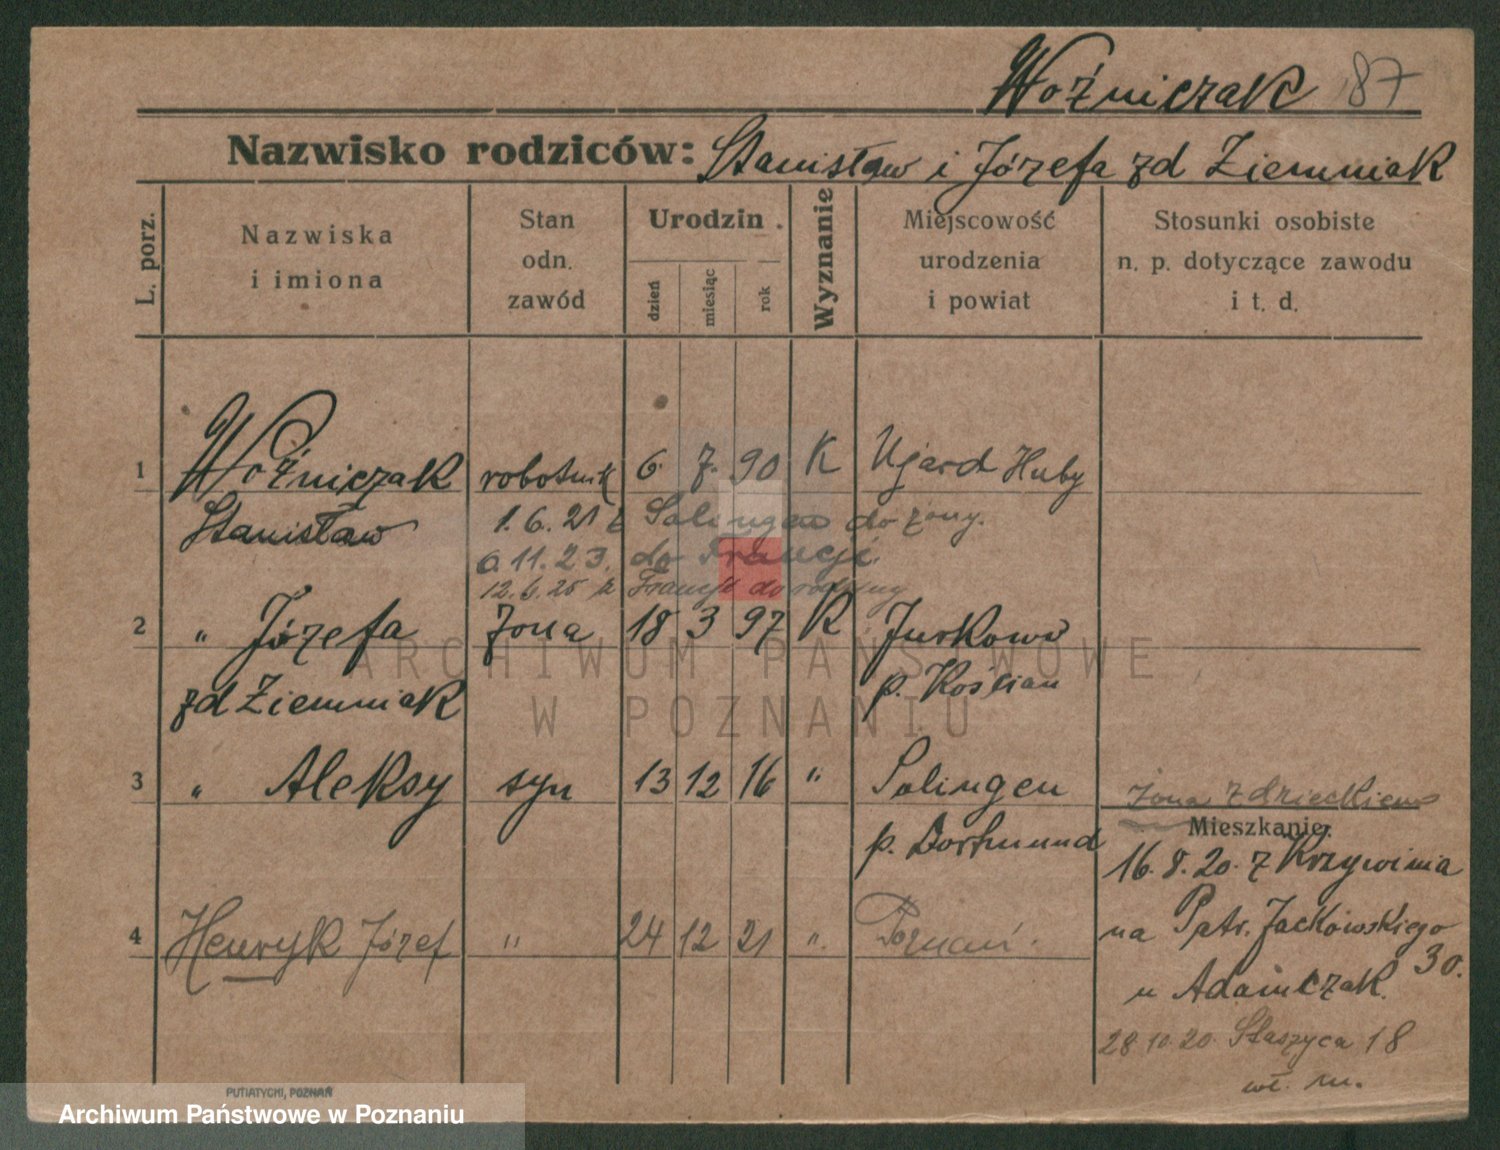 Woźniczak 87
Nazwisko rodziców: Stanisław i Józefa zd Ziemniak
L. porz.
Nazwiska i imiona
Stan odn. zawód
Urodzin
dzień
miesiąc
rok
Wyznanie
Miejscowość urodzenia i powiat
Stosunki osobiste n. p. dotyczące zawodu i t. d.
1 Woźniczak robotnik 6. 7. 90 K Ujazd Huby
Stanisław 1.6.21 z Solingen do żony.
6.11.23. do Francji.
12.6.25 z Francji do rodziny
2 " Józefa żona 18 3 97 K Jurkowo
zd Ziemniak p. Kościan
3 " Aleksy syn 13 12 16 " Solingen
p. Dortmund
żona z dzieckiem
Mieszkanie:
16.8.20. z Krzywinia
na Patr. Jackowskiego
30.
u Adamczak.
4 Henryk Józef " 24 12 21 ". Poznań.
28.10.20. Staszyca 18
wł. m.
ARCHIWUM PAŃSTWOWE
W POZNANIU
PUTIATYCKI, POZNAŃ
Archiwum Państwowe w Poznaniu